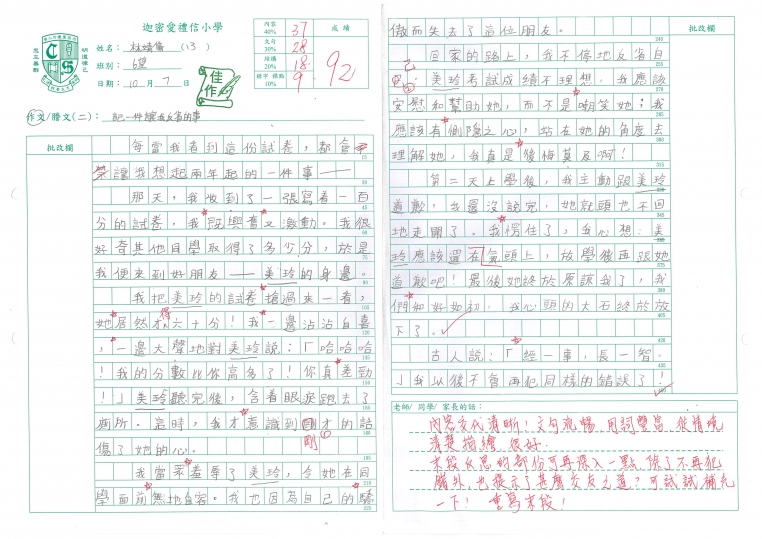 迦密愛禮信小學
姓名： (13)
班別： 6望
日期： 10月7日
佳作
內容 40% 37
文句 30% 28
結構 20% 18
錯字 標點 10% 9
成績
92
作文/謄文(二)： 記一件讓我反省的事
批改欄
每當我看到這份試卷，都會
讓我想起兩年起的一件事——
那天，我收到了一張寫着一百
分的試卷，我既興奮又激動。我很
好奇其他同學取得了多少分，於是
我便來到好朋友——美玲的身邊。
我把美玲的試卷搶過來一看，
她居然才得六十分！我一邊沾沾自喜
，一邊大聲地對美玲說：「哈哈哈
！我的分數比你高多了！你真差勁
！」美玲聽完後，含着眼淚跑去了
廁所。這時，我才意識到剛才的話
剛
傷了她的心。
我當眾羞辱了美玲，令她在同
學面前無地自容。我也因為自己的驕
批改欄
傲而失去了這位朋友。
回家的路上，我不停地反省自
己：美玲考試成績不理想，我應該
安慰和幫助她，而不是嘲笑她；我
應該有惻隱之心，站在她的角度去
理解她，我真是後悔莫及啊！
第二天上學後，我主動跟美玲
道歉，我還沒說完，她就頭也不回
地走開了。我愣住了，我心想：美
玲應該還在氣頭上，放學後再跟她
道歉吧！最後她終於原諒我了，我
們和好如初，我心頭的大石終於放
下了。
古人說：「經一事，長一智。
」我以後不會再犯同樣的錯誤了！
老師/同學/家長的話：
內容交代清晰！文句流暢，用詞豐富，從情境
清楚描繪，很好。
末段反思的部份可再深入一點，除了不再犯
錯外，也提示了甚麼交友之道？可試試補充
一下！ 重寫末段！